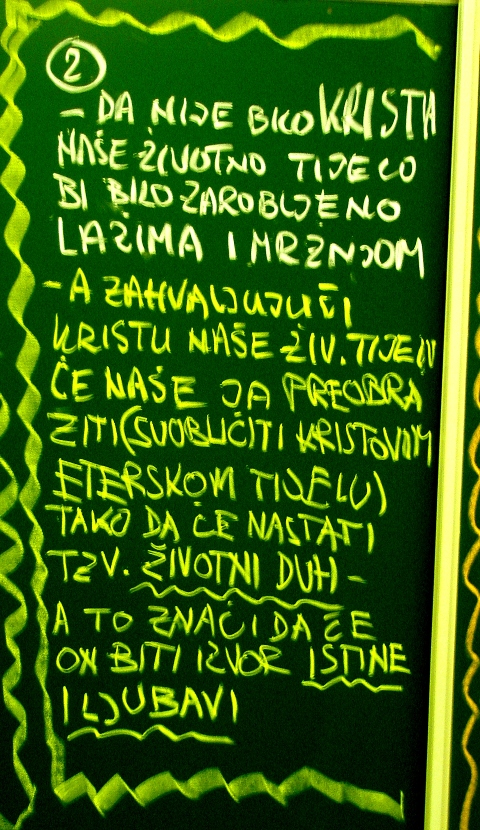 2
- DA NIJE BILO KRISTA
NAŠE ŽIVOTNO TIJELO
BI BILO ZAROBLJENO
LAŽIMA I MRŽNJOM
- A ZAHVALJUJUĆI
KRISTU NAŠE ŽIV. TIJELO
ĆE NAŠE JA PREOBRA
ZITI (SUOBLIČITI KRISTOVOM
ETERSKOM TIJELU)
TAKO DA ĆE NASTATI
TZV. ŽIVOTNI DUH -
A TO ZNAČI DA ĆE
ON BITI IZVOR ISTINE
I LJUBAVI